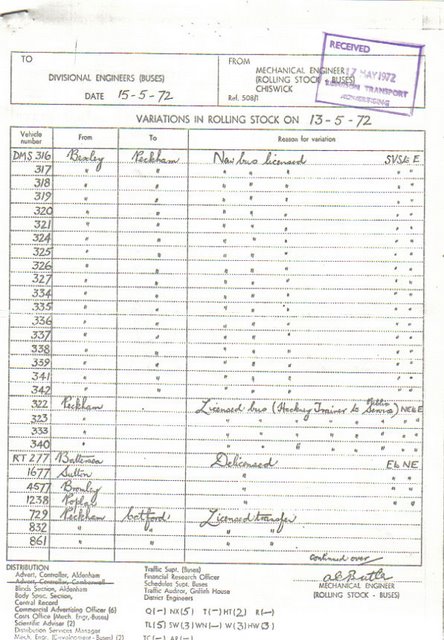 TO
DIVISIONAL ENGINEERS (BUSES)
DATE 15-5-72
FROM
MECHANICAL ENGINEER
(ROLLING STOCK - BUSES)
CHISWICK
Ref. 508/1
RECEIVED
17 MAY 1972
LONDON TRANSPORT
ADVERTISING
VARIATIONS IN ROLLING STOCK ON 13-5-72
Vehicle number From To Reason for variation
DMS 316 Bexley Peckham New bus licensed SVS&E E
317 " " " " " " "
318 " " " " " " "
319 " " " " " " "
320 " " " " " " "
321 " " " " " " "
324 " " " " " " "
325 " " " " " " "
326 " " " " " " "
327 " " " " " " "
334 " " " " " " "
335 " " " " " " "
336 " " " " " " "
337 " " " " " " "
338 " " " " " " "
339 " " " " " " "
341 " " " " " " "
342 " " " " " " "
322 Peckham Licensed bus (Hackney Trainer to Public Service) NE&E
323 " " " " " " " " "
333 " " " " " " " " "
340 " " " " " " " " "
RT 277 Battersea Delicensed E& NE
1677 Sutton " "
4577 Bromley " "
1238 Poplar " "
729 Peckham Catford Licensed transfer
832 " " " "
861 " " " "
Continued over
DISTRIBUTION
Advert. Controller, Aldenham
Advert. Controller, Camberwell
Blinds Section, Aldenham
Body Spec. Section,
Central Record
Commercial Advertising Officer (6)
Costs Office (Mech. Engr. Buses)
Scientific Adviser (2)
Distribution Services Manager
Mech. Engr. (Development - Buses) (2)
Traffic Supt. (Buses)
Financial Research Officer
Schedules Supt. Buses
Traffic Auditor, Griffith House
District Engineers
Q(-) NX(5) T(-) HT(2) R(-)
TL(5) SW(3) WN(-) W(3) HW(3)
TC(-) AR(-)
MECHANICAL ENGINEER
(ROLLING STOCK - BUSES)